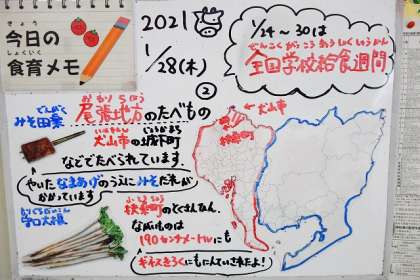 きょう
今日の
しょくいく
食育メモ
2021
1/28(木)
1/24～30は
ぜんこくがっこうきゅうしょくしゅうかん
全国学校給食週間
②
おわりちほう
尾張地方のたべもの
でんがく
みそ田楽
いぬやまし
犬山市の城下町
じょうかまち
などでたべられています。
やいたなまあげのうえにみそだれが
かかっています
扶桑町のとくさんひん。
ながいものは
190センチメートルにも
ギネスきろくにもにんていされたよ!
犬山市
扶桑町